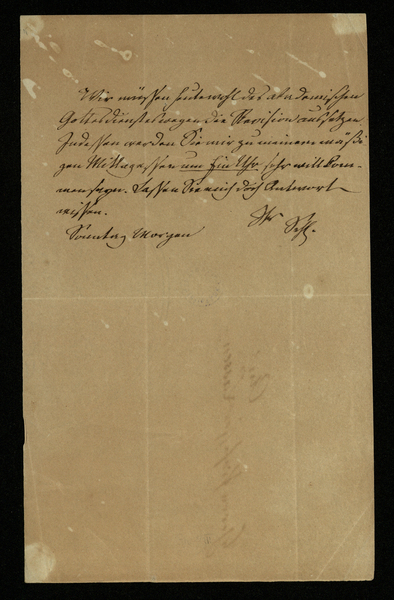 Wir müssen heute wohl des akademischen
Gottesdienstes wegen die Revision aussetzen
Indessen werden Sie mir zu meinem mäßi
gen Mittagessen um Ein Uhr sehr willkom-
men seyn. Lassen Sie mich doch Antwort
wissen.
Ihr
Schl.
Sonntag Morgen